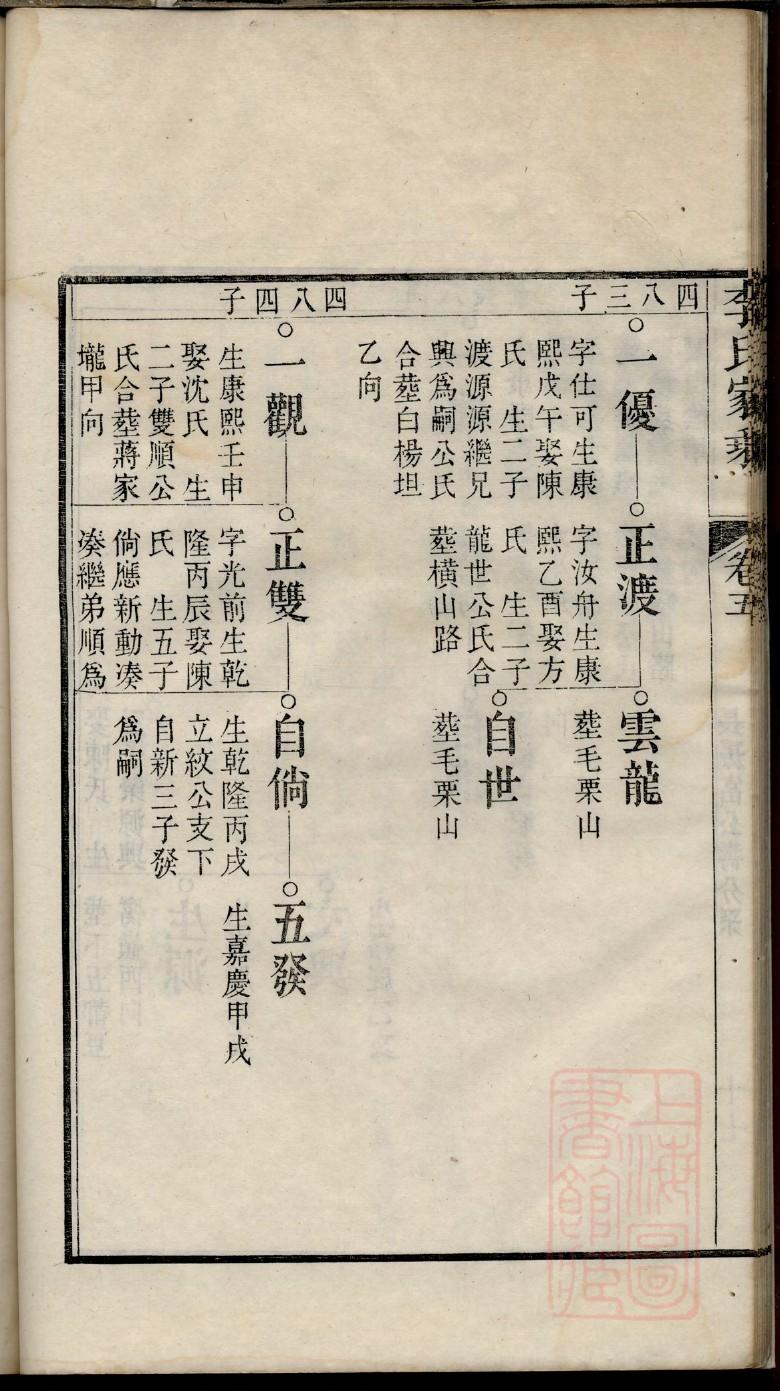 李氏家乘
卷五
四八三子
一優
字仕可生康
熙戊午娶陳
氏 生二子
渡源源繼兄
興爲嗣公氏
合塟白楊坦
乙向
正渡
字汝舟生康
熙乙酉娶方
氏 生二子
龍世公氏合
塟橫山路
雲龍
塟毛栗山
自世
塟毛栗山
四八四子
一觀
生康熙壬申
娶沈氏 生
二子雙順公
氏合塟蔣家
壠甲向
正雙
字光前生乾
隆丙辰娶陳
氏 生五子
倘應新動凑
凑繼弟順爲
自倘
生乾隆丙戌
立紋公支下
自新三子發
爲嗣
五發
生嘉慶甲戌
上海圖
書館藏